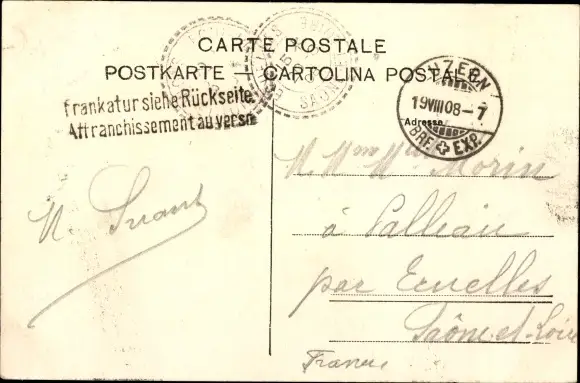 CARTE POSTALE
POSTKARTE — CARTOLINA POSTALE
Frankatur siehe Rückseite.
Affranchissement au verso
LUZERN
19 VIII 08 - 7
BRF. EXP.
Adresse
M. Mme Morin
à Palleau
par Ecuelles
Saône-et-Loire
France